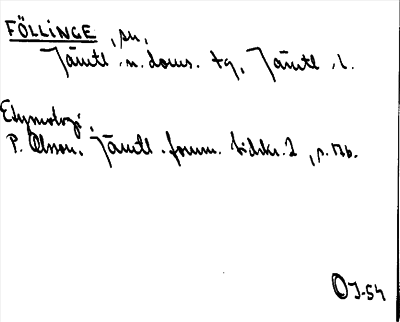 FÖLLINGE, sn,
Jämtl. n. doms. tg, Jämtl. l.
Etymologi.
P. Olsson. Jämtl. fornm. tidskr. 2, s. 176.
OJ-54